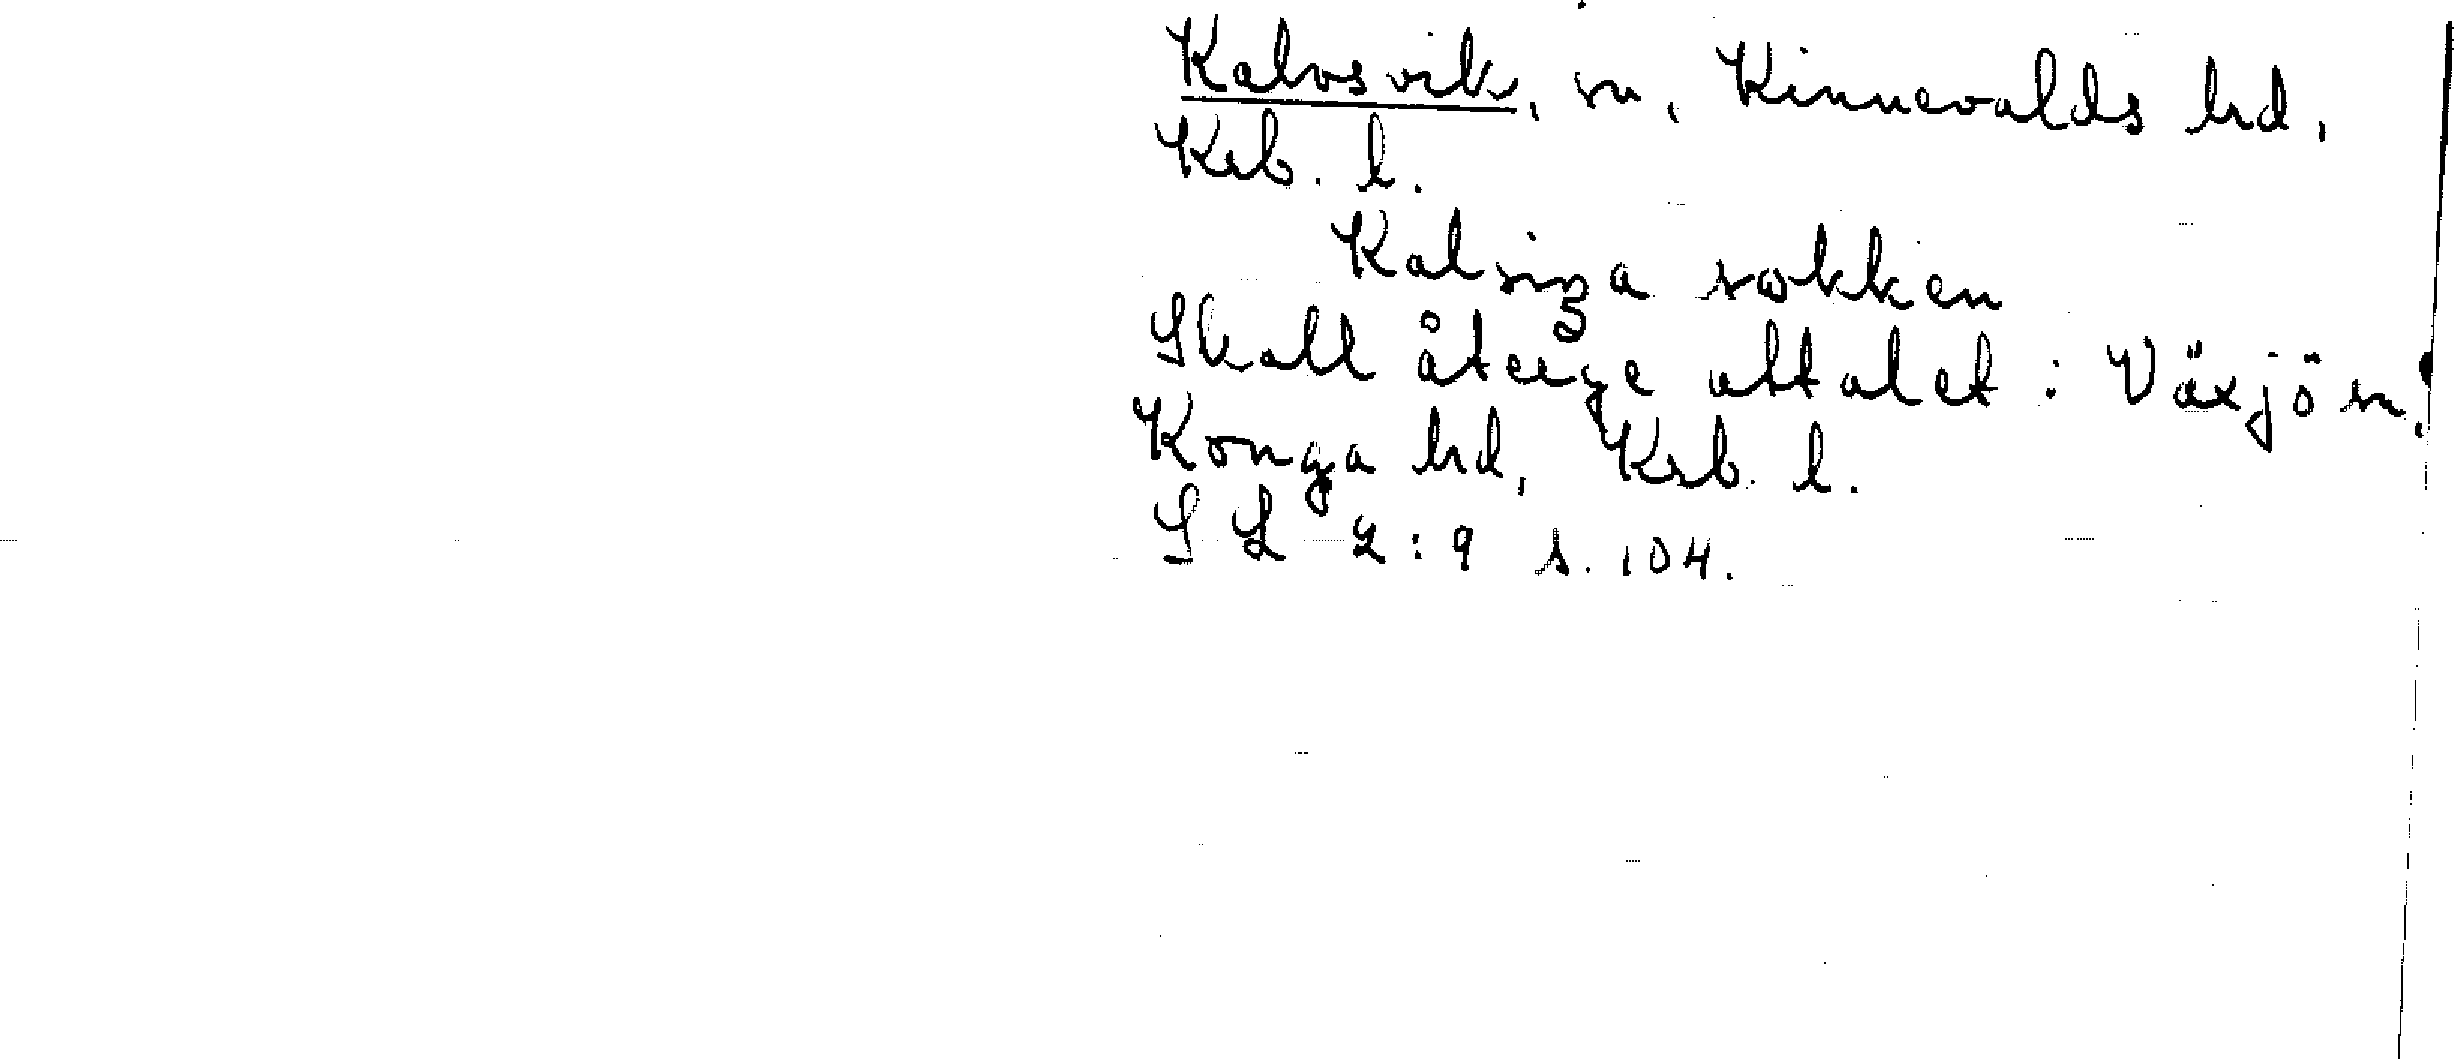 Kalvsvik, sn, Kinnevalds hd,
Krb. l.
Kalsiga sokken
Skall återge uttalet: Växjö sn,
Konga hd, Krb. l.
S L 2:9 s. 104.